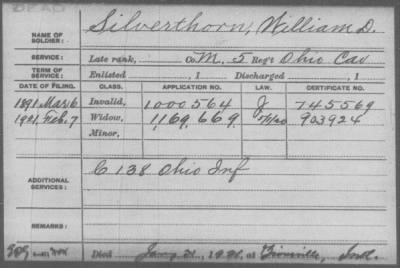 DEAD
NAME OF SOLDIER: Silverthorn, William D.
SERVICE: Late rank, Co. M, 5 Reg't Ohio Cav
TERM OF SERVICE: Enlisted , 1 Discharged , 1
DATE OF FILING. CLASS. APPLICATION NO. LAW. CERTIFICATE NO.
1891 Mar 6 Invalid, 1000564 J 745569
1901, Feb. 7 Widow, 1,169,669. 903924
Minor,
ADDITIONAL SERVICES: C 138 Ohio Inf
REMARKS:
Died 1901, at Ind.